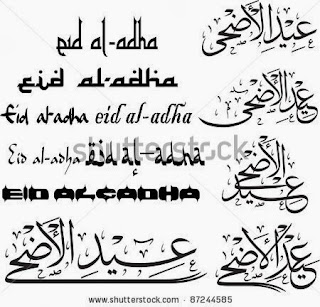 eid al-adha
عيد الأضحى
eid al-adha
عيد الأضحى
Eid al-adha eid al-adha
shutterstock
Eid al-adha Eid al-adha
عيد الأضحى
EID ALCADHA
عيد الأضحى
عيد الأضحى
www.shutterstock.com · 87244585